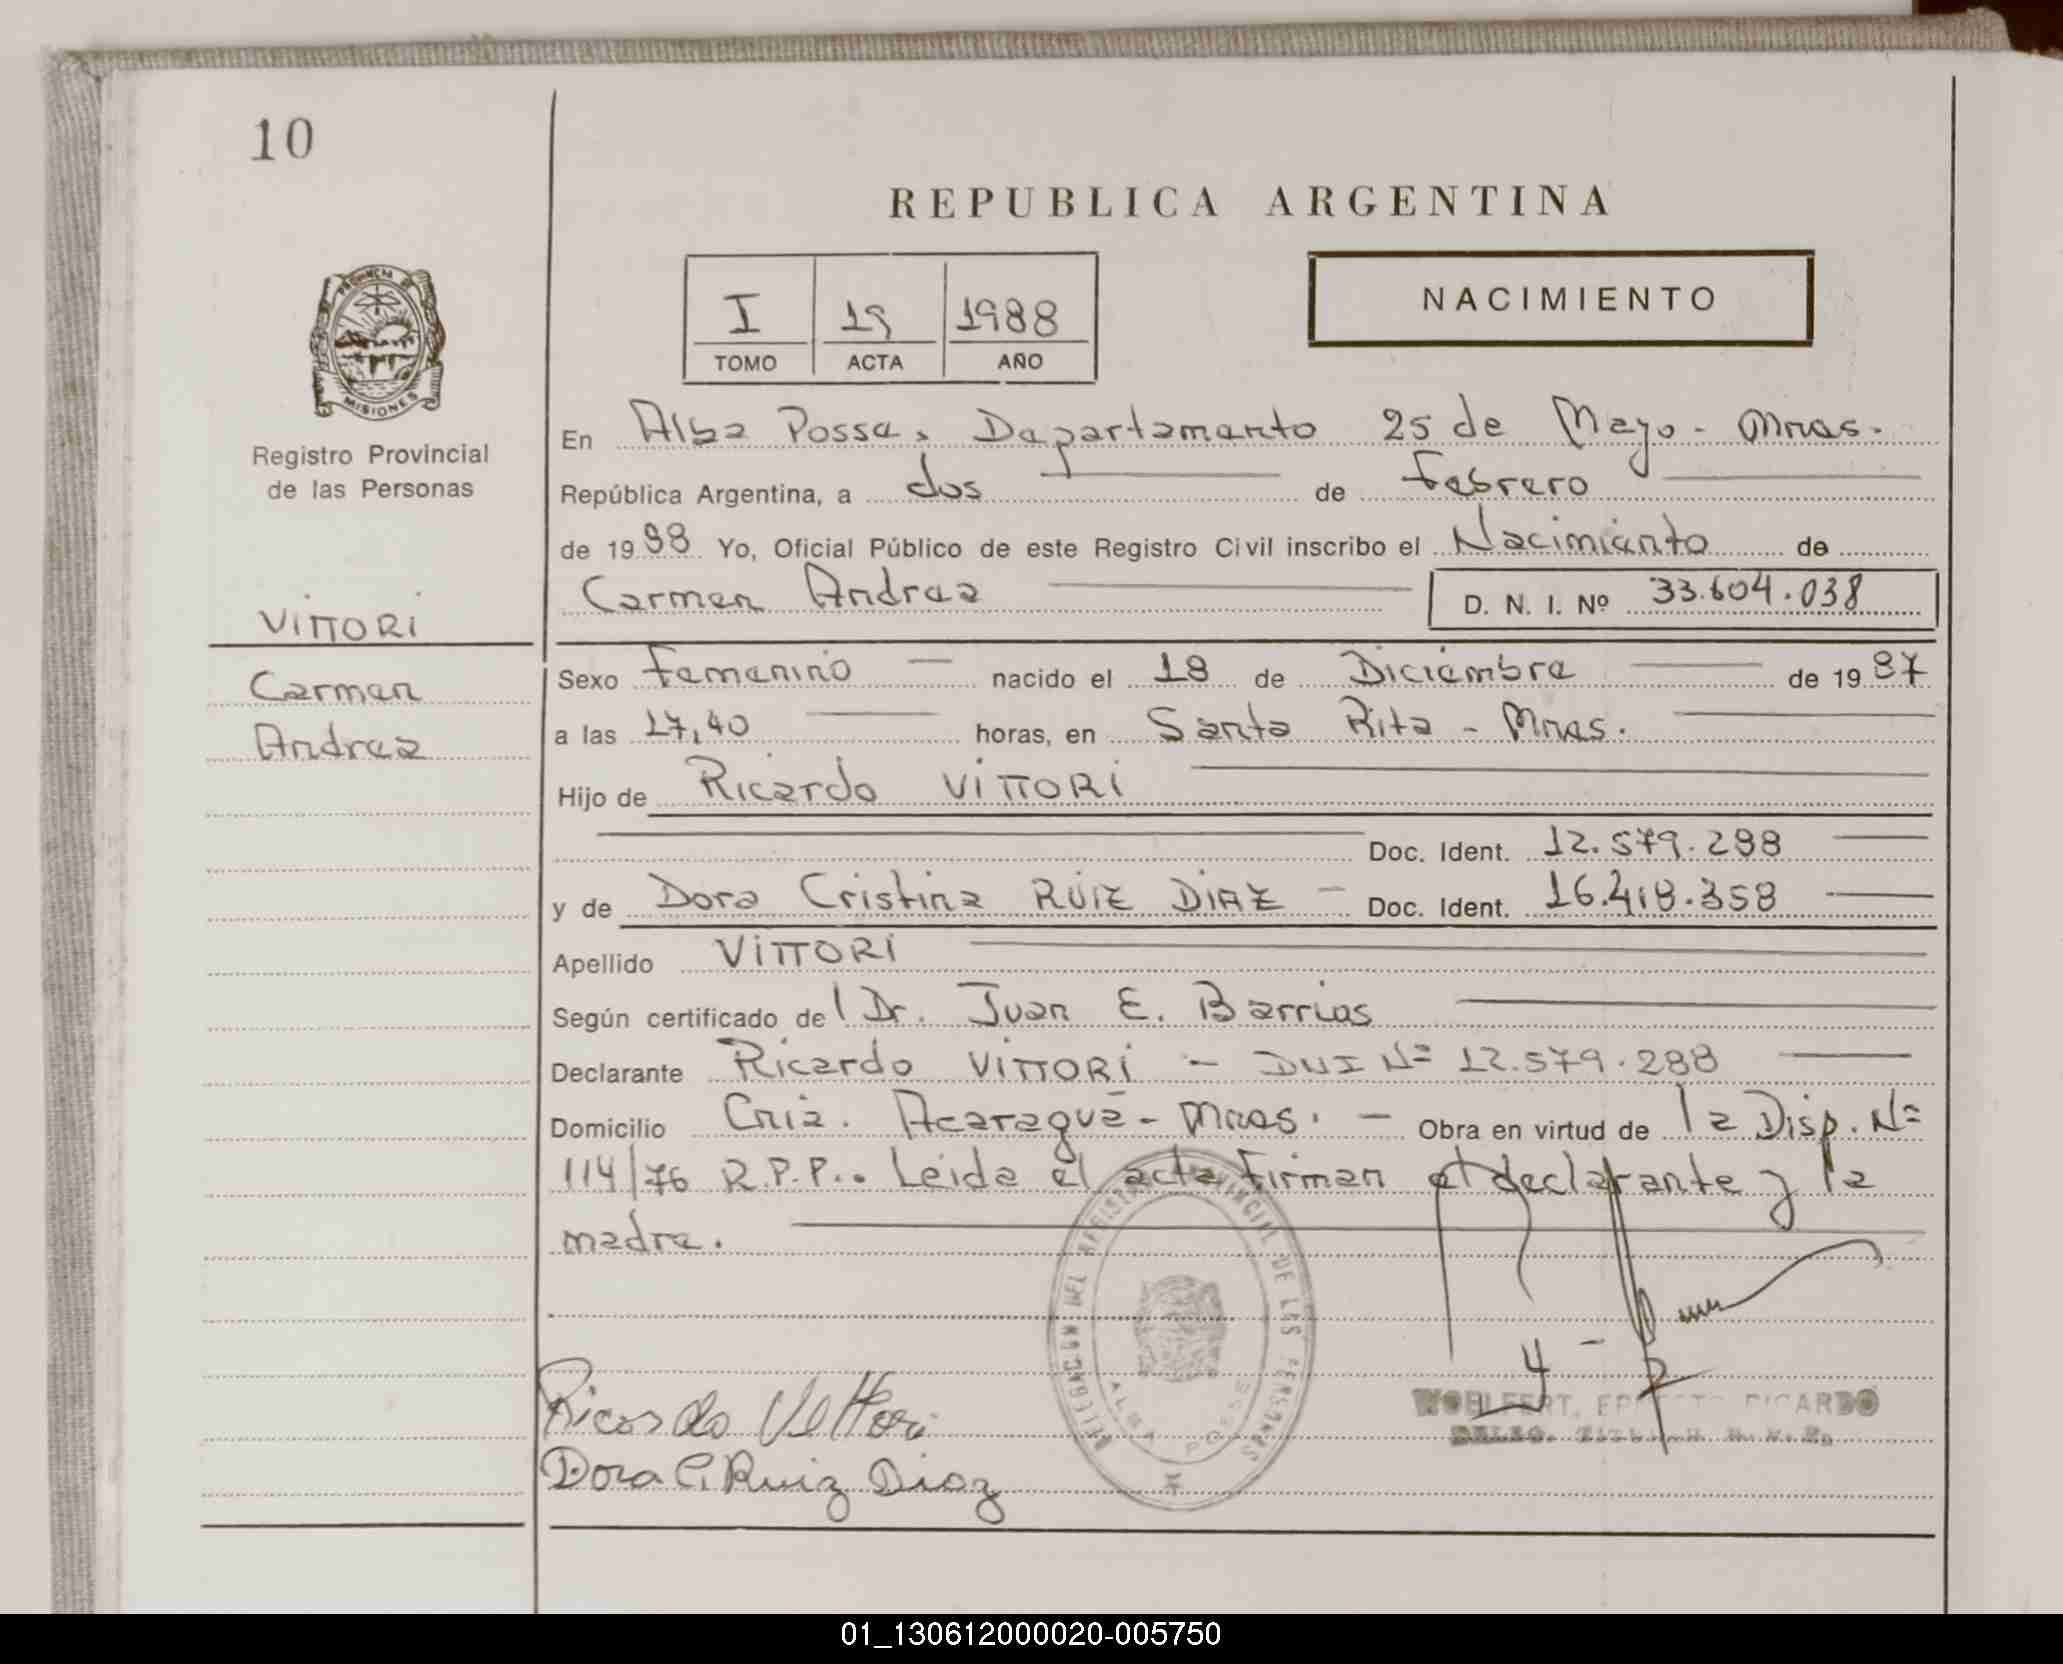 10
REPUBLICA ARGENTINA
I 19 1988
TOMO ACTA AÑO
NACIMIENTO
PROVINCIA DE
MISIONES
Registro Provincial
de las Personas
VITTORI
Carmen
Andrea
En Alba Posse, Departamento 25 de Mayo - Mnes.
República Argentina, a dos de Febrero
de 1988 Yo, Oficial Público de este Registro Civil inscribo el Nacimiento de
Carmen Andrea D. N. I. Nº 33.604.038
Sexo Femenino nacido el 18 de Diciembre de 1987
a las 17,40 horas, en Santa Rita - Mnes.
Hijo de Ricardo VITTORI
Doc. Ident. 12.579.288
y de Dora Cristina RUIZ DIAZ - Doc. Ident. 16.418.358
Apellido VITTORI
Según certificado del Dr. Juan E. Barrios
Declarante Ricardo VITTORI - DNI Nº 12.579.288
Domicilio Cnia. Acaragué - Mnes. - Obra en virtud de la Disp. Nº
114/76 R.P.P.. Leida el acta firman el declarante y la
madre.
DELEGACION DEL REGISTRO PROVINCIAL DE LAS PERSONAS
ALBA POSSE
4 - 2
Ricardo Vittori
Dora C. Ruiz Diaz
WOHLFERT, ERNESTO RICARDO
DELEG. TITULAR
01_130612000020-005750